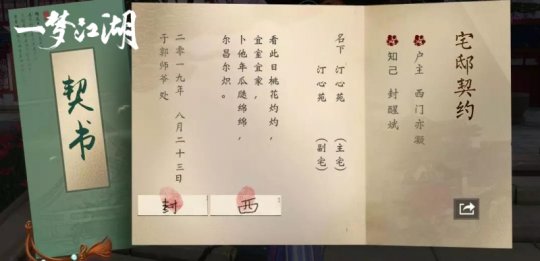 一梦江湖
契书
宅邸契约
户主 西门亦凝
知己 封醒斌
名下 汀心苑 (主宅)
汀心苑 (副宅)
看此日桃花灼灼，
宜室宜家，
卜他年瓜瓞绵绵，
尔昌尔炽。
二零一九年 八月二十三日
于郭师爷处
封
西